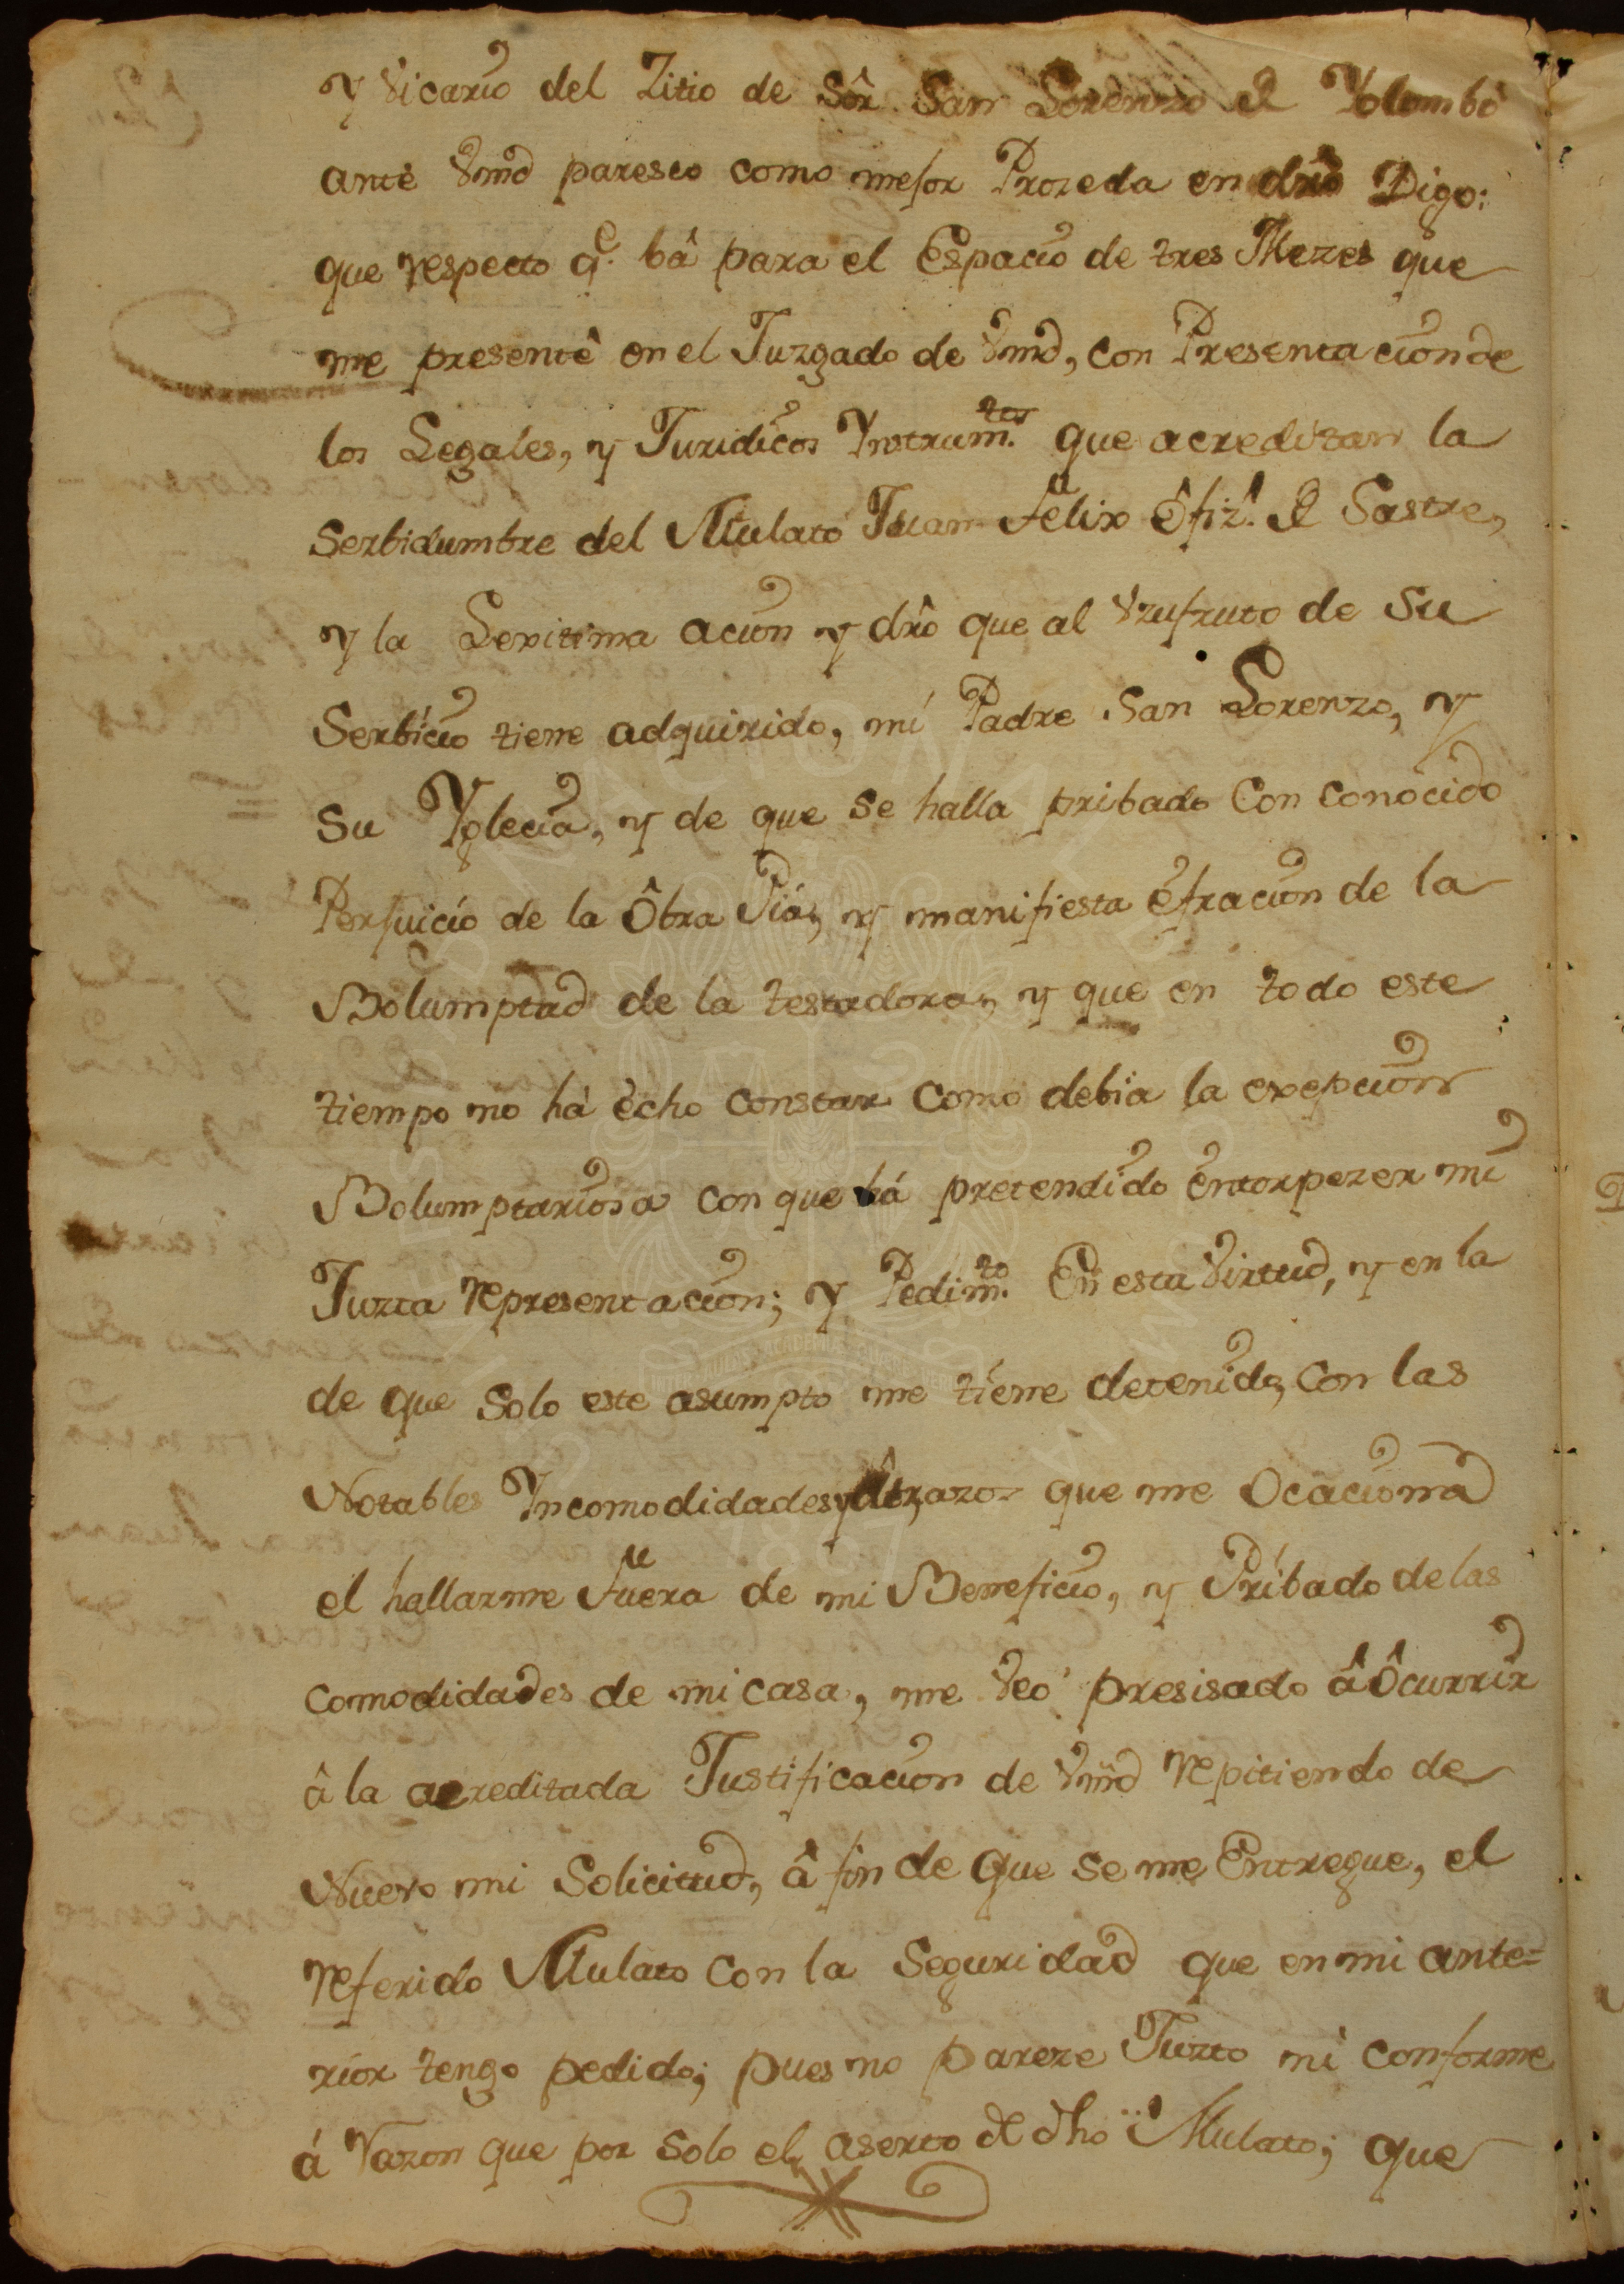 y Vicario del Zitio de Sôr San Lorenzo de Yolombô
ante Vmd paresco como mejor Prozeda en drô Digo:
que respecto q.e bâ para el Espacio de tres Mezes que
me presentê en el Juzgado de Vmd, con Presentacion de
los Legales, y Juridicos Ynstrum.tos que acreditan la
Serbidumbre del Mulato Juan Felix Ôfiz.l de Sastre,
y la Lexitima acion y drô que al Vzufruto de Su
Serbicio tiene adquirido, mi Padre San Lorenzo, y
Su Yglecia, y de que se halla pribado Con conocido
Perjuicio de la Ôbra Piá, y manifiesta efracion de la
Bolumptad de la testadora, y que en todo este
tiempo no há echo constar como debia la exepcion
Bolumptariosa con que há pretendido entorpezer mi
Juzta representacion; y Pedim.to En esta Virtud, y en la
de que Solo este asumpto me tiene detenido, Con las
Notables Yncomodidades, y Atrazos que me Ocacionâ
el hallarme fuera de mi Beneficio, y Pribado de las
comodidades de mi casa, me Veo presisado â Ôcurrir
â la acreditada Justificacion de Vmd repitiendo de
Nuevo mi Solicitud, â fin de que Se me Entregue, el
referido Mulato Con la Seguridad que en mi ante=
rior tengo pedido; pues no pareze Juzto ni conforme
á razon que por Solo el aserto de dho Mulato; que
UNIVERSIDAD NACIONAL
1867